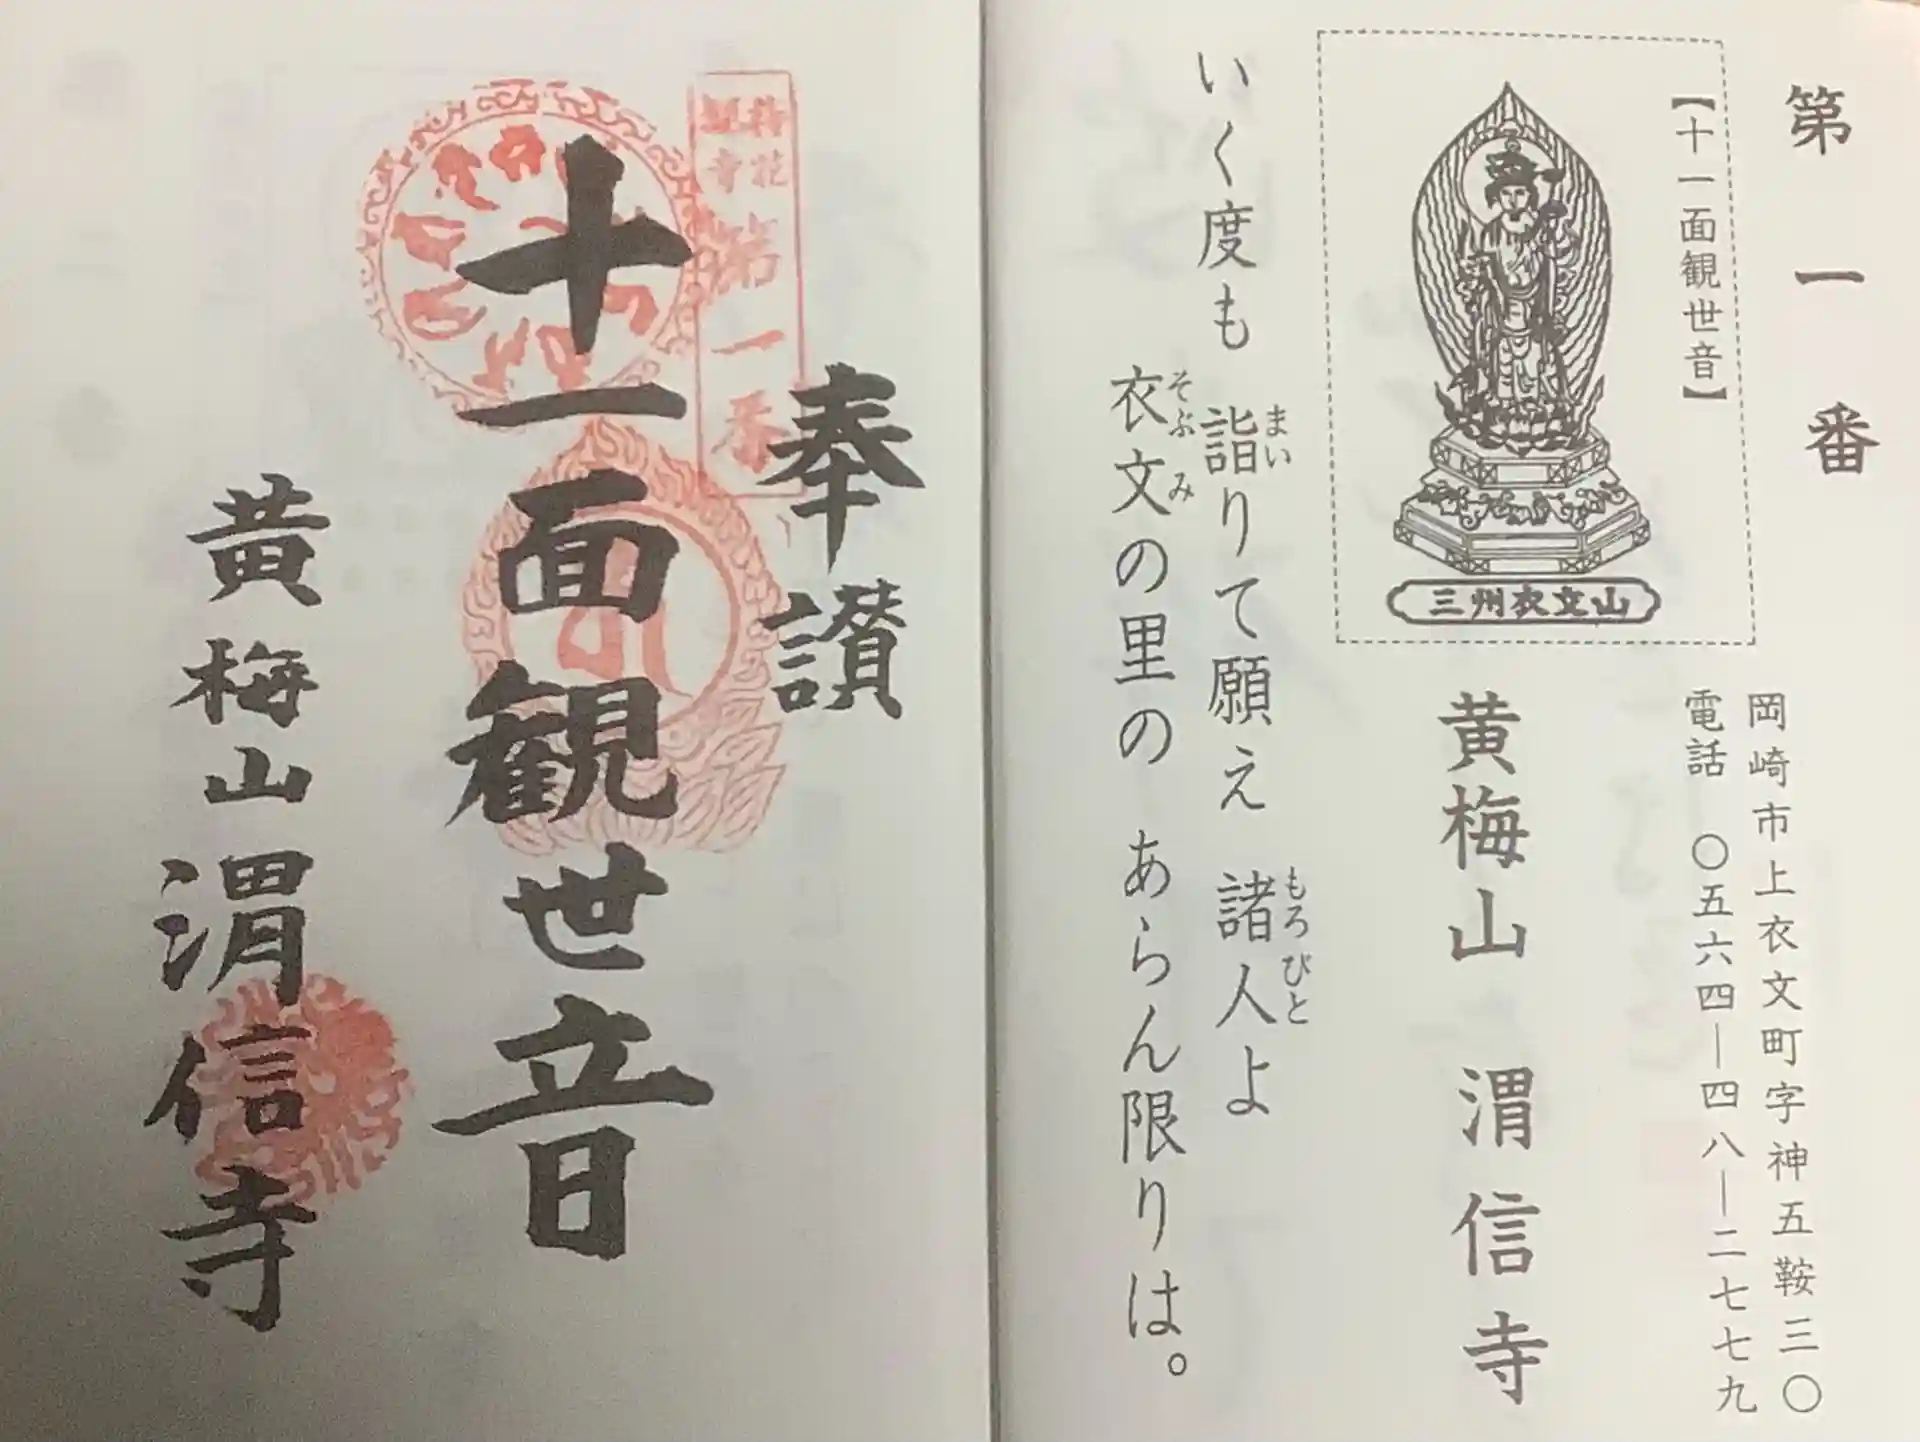 第一番
【十一面観世音】
三州衣文山
岡崎市上衣文町字神五鞍三〇
電話 〇五六四―四八―二七七九
黄梅山 渭信寺
いく度も 詣りて願え 諸人よ
まい
もろびと
衣文の里の あらん限りは。
そぶみ
第一番
奉讃
十一面観世音
黄梅山渭信寺